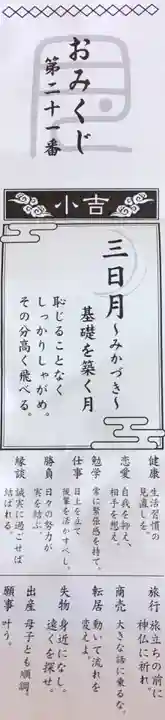 おみくじ
第二十一番
小吉
三日月～みかづき～
基礎を築く月
恥じることなく
しっかりしゃがめ。
その分高く飛べる。
健康 生活習慣の
見直しを。
恋愛 自我を抑え、
相手を想え。
勉学 常に緊張感を持て。
仕事 目上を立て
後輩を活かすべし。
勝負 日々の努力が
実を結ぶ。
縁談 誠実に過ごせば
結ばれる。
旅行 旅立ちの前に
神仏に祈れ。
商売 大きな話に乗るな。
転居 動いて流れを
変えよ。
失物 身近になし。
遠くを探せ。
出産 母子とも順調。
願事 叶う。